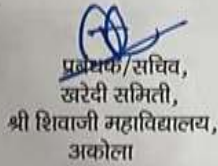 प्रबंधक/सचिव,
खरेदी समिती,
श्री शिवाजी महाविद्यालय,
अकोला